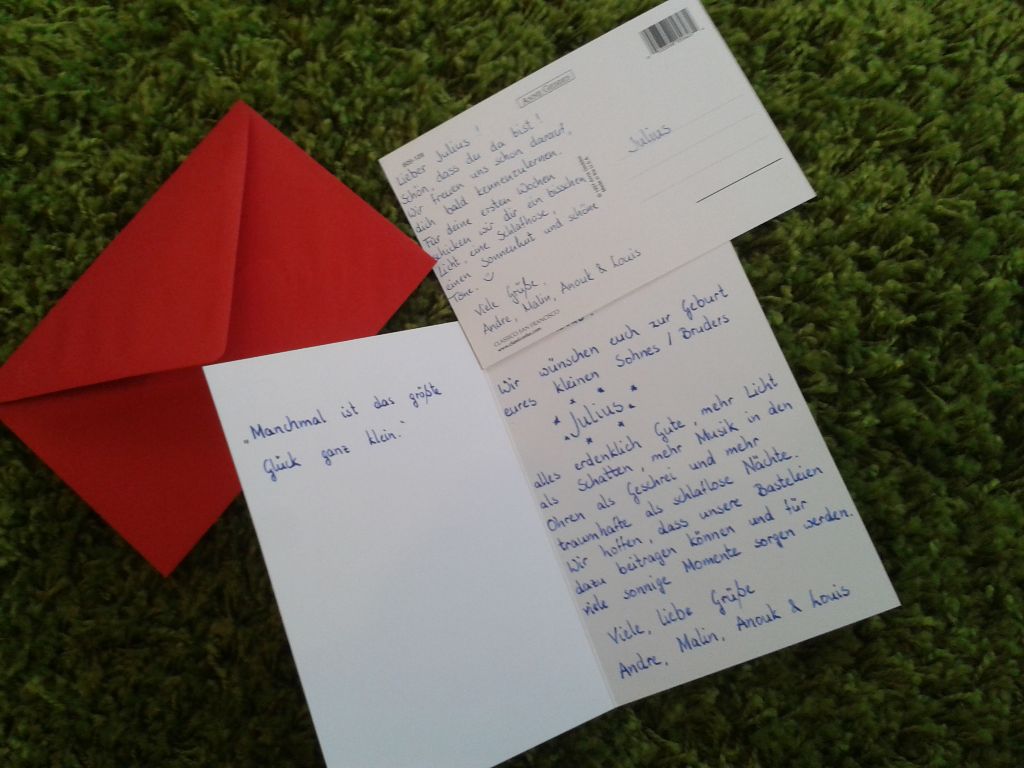 Lieber Julius!
Schön, dass du da bist!
Wir freuen uns schon darauf,
dich bald kennenzulernen.
Für deine ersten Wochen
schicken wir dir ein bisschen
Licht, eine Schlafhose,
einen Sonnenhut und schöne
Töne. ☺
Viele Grüße,
Andre, Malin, Anouk & Louis
CLASSICO SAN FRANCISCO
Julius
„Manchmal ist das größte
Glück ganz klein.“
Wir wünschen euch zur Geburt
eures kleinen Sohnes / Bruders
Julius
alles erdenklich Gute, mehr Licht
als Schatten, mehr Musik in den
Ohren als Geschrei und mehr
traumhafte als schlaflose Nächte.
Wir hoffen, dass unsere Basteleien
dazu beitragen können und für
viele sonnige Momente sorgen werden.
Viele, liebe Grüße
Andre, Malin, Anouk & Louis